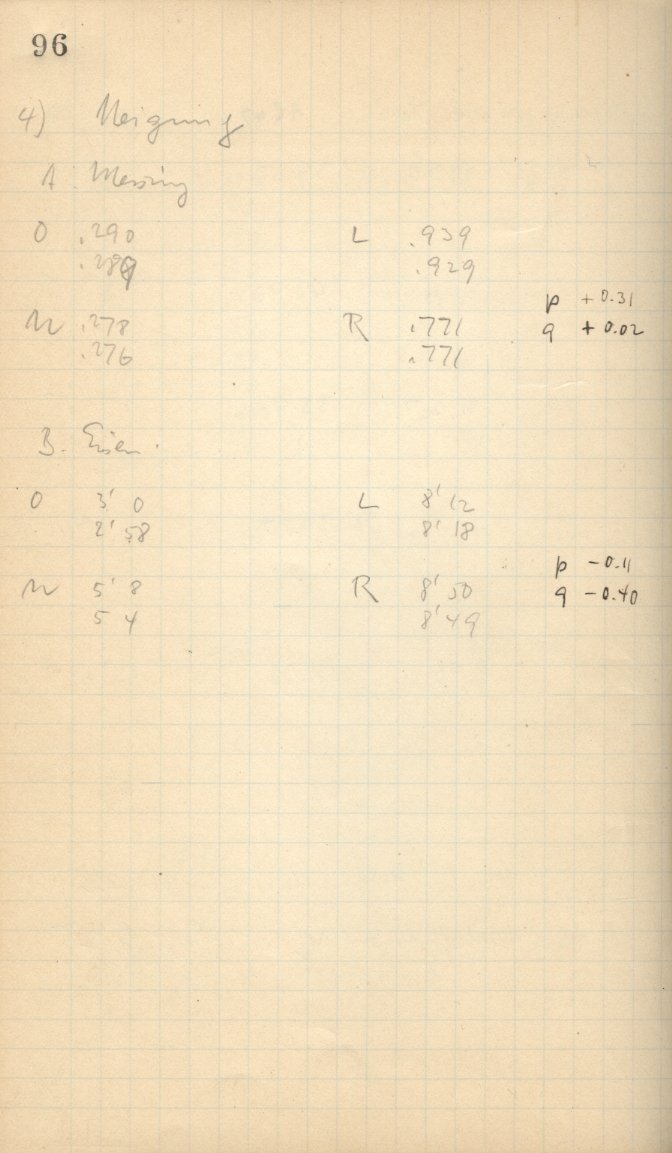 96
4) Neigung
A. Messing
O .290 L .939
.289 .929
p + 0.31
U .278 R .771 q + 0.02
.276 .771
B. Eisen.
O 3' 0 L 8' 12
2' 58 8' 18
p - 0.11
U 5' 8 R 8' 50 q - 0.40
5 4 8' 49